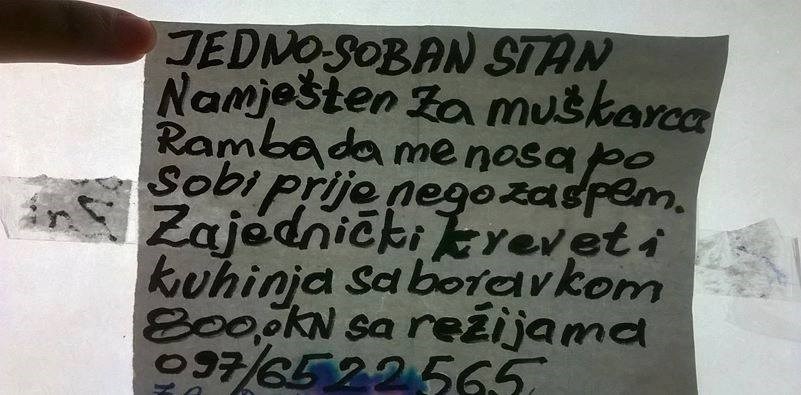 JEDNO-SOBAN STAN
Namješten za muškarca
Ramba da me nosa po
sobi prije nego zaspem.
Zajednički krevet i
kuhinja sa boravkom
800,0KN sa režijama
097/6522565